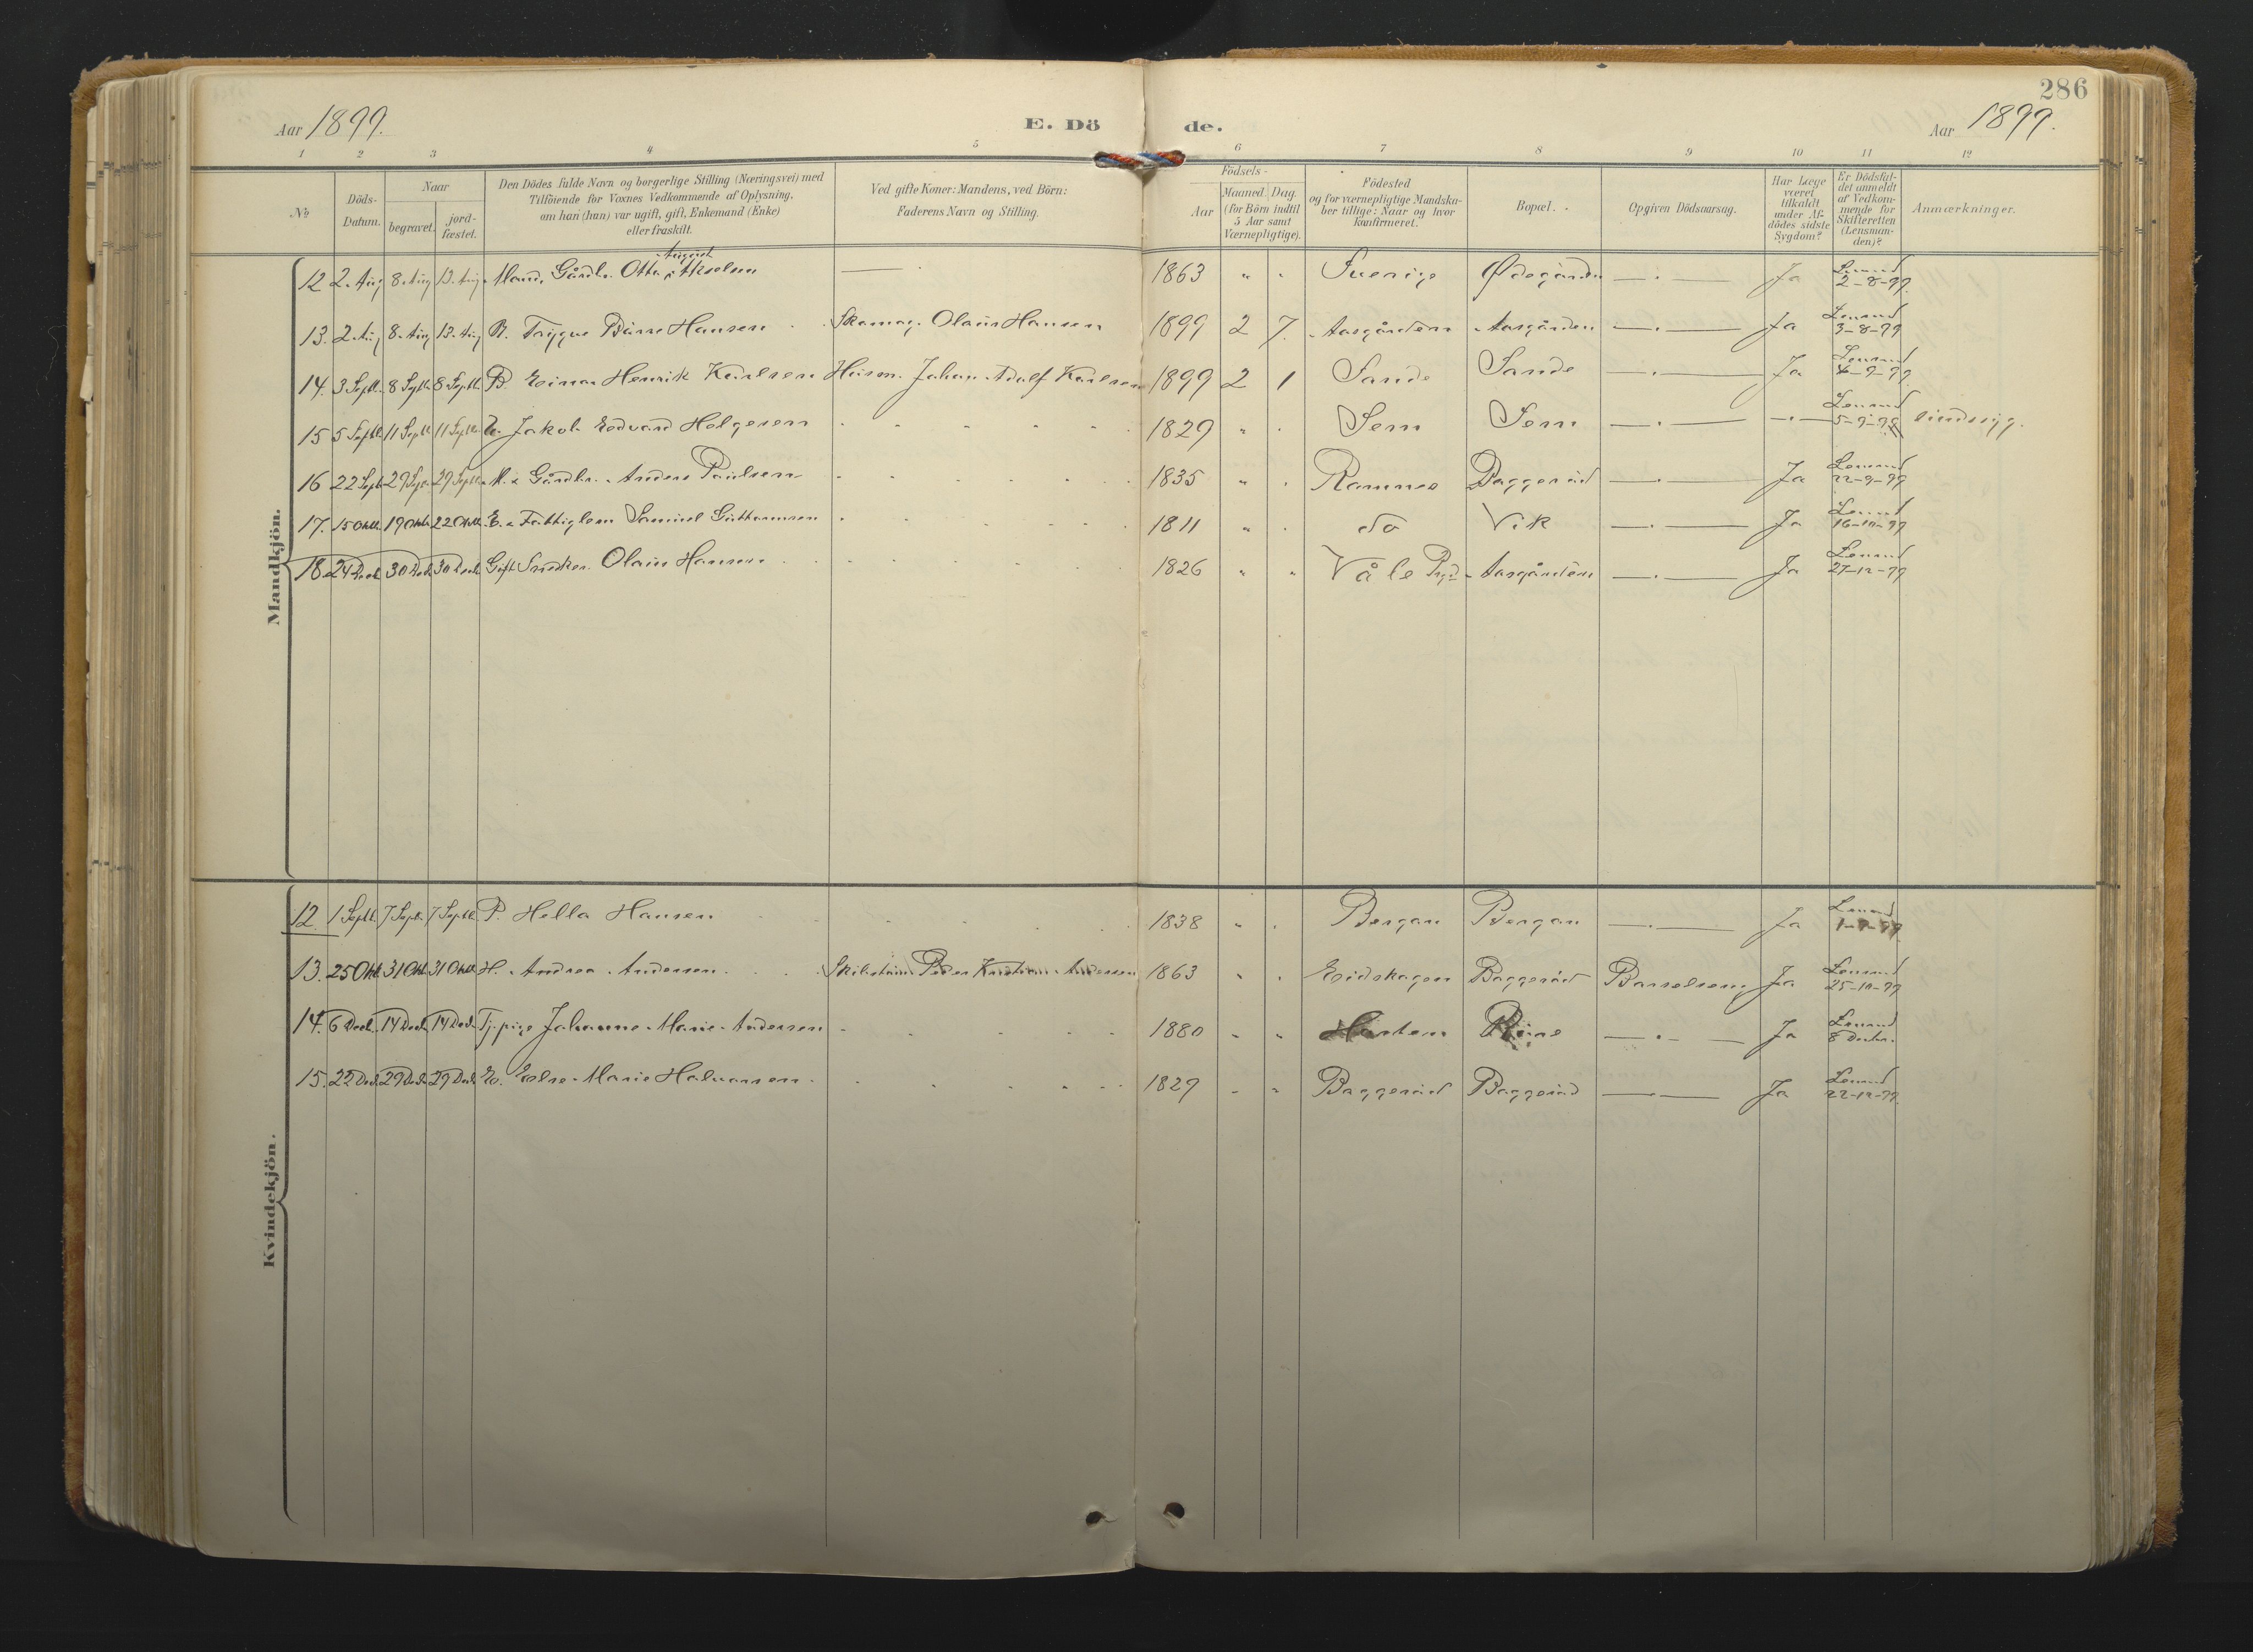 286
Aar 1899.
E. Dö de.
Aar 1899.
1 2 3 4 5 6 7 8 9 10 11 12
№
Döds-Datum.
Naar
begravet. jord-fæstet.
Den Dödes fulde Navn og borgerlige Stilling (Næringsvei) med
Tilföiende for Voxnes Vedkommende af Oplysning,
om han (hun) var ugift, gift, Enkemand (Enke)
eller fraskilt.
Ved gifte Koner: Mandens, ved Börn:
Faderens Navn og Stilling.
Födsels-
Aar Maaned. Dag.
(for Börn indtil
5 Aar samt
Værnepligtige).
Födested
og for værnepligtige Mandska-
ber tillige: Naar og hvor
konfirmeret.
Bopæl.
Opgiven Dödsaarsag.
Har Læge
været
tilkaldt
under Af-
dödes sidste
Sygdom?
Er Dödsfal-
det anmeldt
af Vedkom-
mende for
Skifteretten
(Lensman-
den)?
Anmærkninger.
Mandkjön.
August
12 2. Aug 8. Aug 13. Aug. Gårdbr. Otto Akselsen — 1863 " " Sverige Ødegården —.— Ja Lensmd 2-8-99.
13. 2. Aug 8. Aug 13. Aug B. Trygve Hansen Skomag. Olaus Hansen 1899 2 7. Aasgården Aasgården —.— Ja Lensmd 3-8-99
14. 3 Septb. 8 Septb. 8 Septb. B. Einar Henrik Karlsen Husm. Johan Adolf Karlsen 1899 2 1 Sande Sande —.— Ja Lensmd 9-99.
15 5 Septb. 11 Septb. 11 Septb. Jakob Edvard Helgesen 1829 " " Sem Sem —.— —.— Lensmd 5-9-99 sindssyg.
16 22 Septb. 29 Septb. 29 Septb. Gårdbr. Anders Paulsen 1835 " " Ramnes Baggerød —.— Ja Lensmd 22-9-99
17. 15 Oktb. 19 Oktb. 22 Oktb. Fattiglem Samuel Guttormsen 1811 " " do Vik —.— Ja Lensmd 16-10-99
18. 24 Decb. 30 Decb. 30 Decb. Gift Snedker Olaus Hansen 1826 " " Våle Aasgården —.— Ja Lensmd 27-12-99
Kvindekjön.
12. 1 Septb. 7 Septb. 7 Septb. P. Hella Hansen 1838 " " Bergan Bergan —.— Ja Lensmd 1-9-99.
13. 25 Oktb. 31 Oktb. 31 Oktb. H. Andrea Andersen. Peder Kristian Andersen 1863 " " Eidskogen Baggerød Barselseng Ja Lensmd 25-10-99
14. 6 Decb. 14 Decb. 14 Decb. Tj. pige Johanne Marie Andersen 1880 " " —.— Ja Lensmd 8 Decbr.
15. 22 Decb. 29 Decb. 29 Decb. Else Marie Halvorsen 1829 " " Baggerød Baggerød —.— Ja Lensmd 22-12-99.